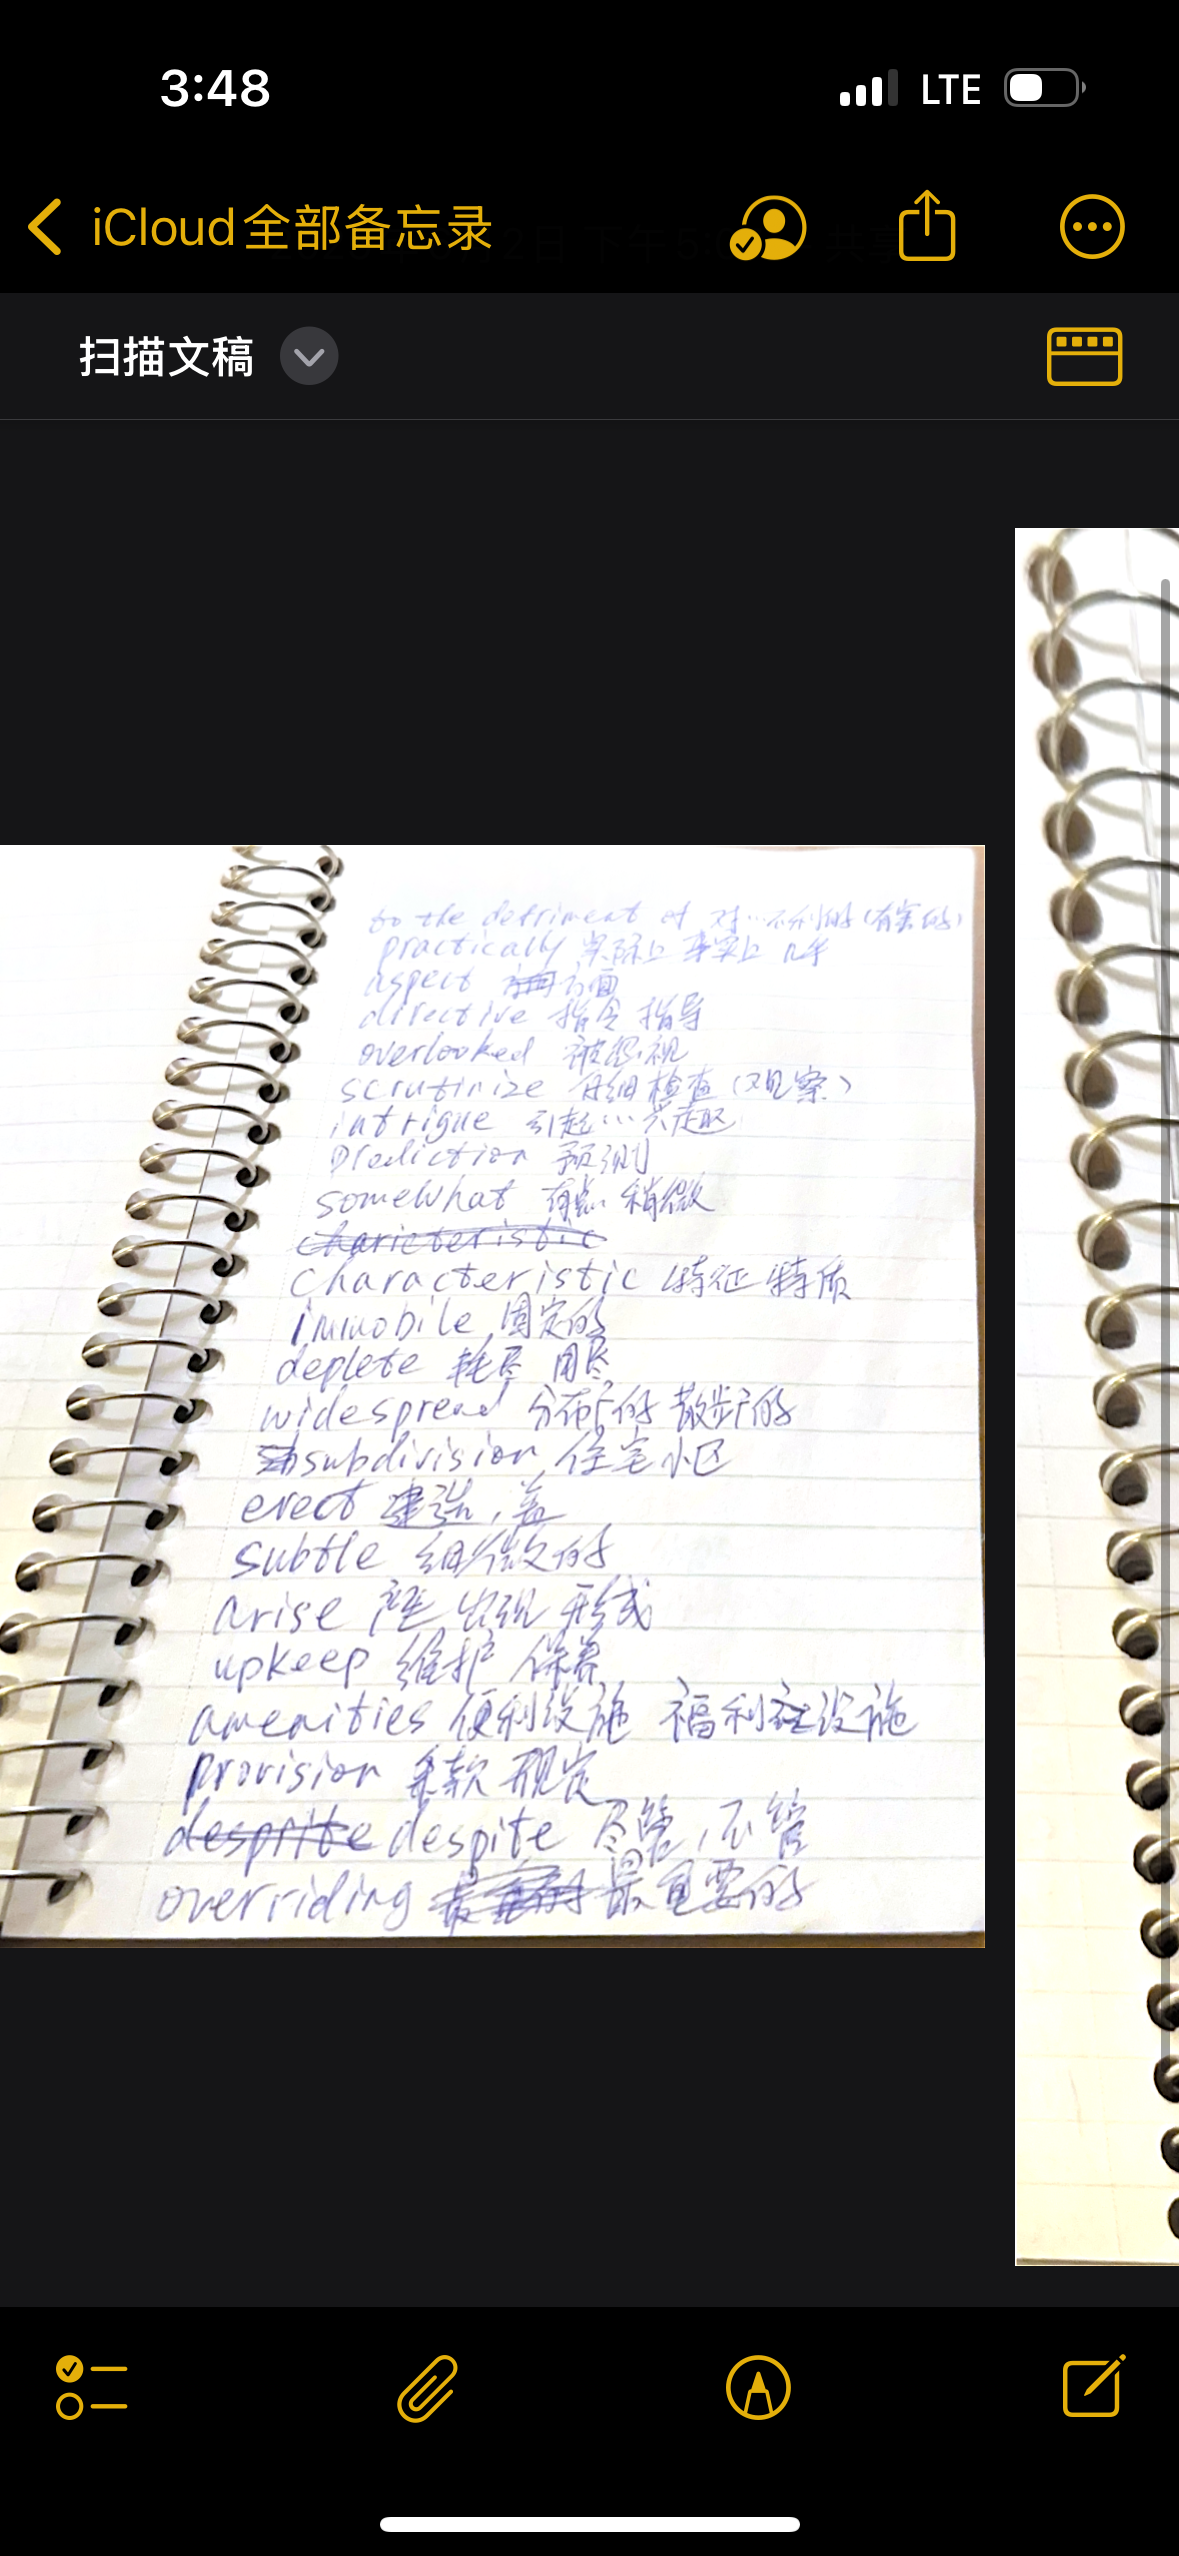 3:48 LTE
iCloud全部备忘录
扫描文稿
to the detriment of 对…不利的(有害的)
practically 实际上 事实上 几乎
aspect 方面
directive 指令 指导
overlooked 被忽视
scrutinize 仔细检查(观察)
intrigue 引起…兴趣
prediction 预测
somewhat 有点 稍微
charicteristic
characteristic 特征 特质
immobile 固定的
deplete 耗尽 用尽
widespread 分布广的 散步广的
subdivision 住宅小区
erect 建造,盖
subtle 细微的
arise 产生 出现 形成
upkeep 维护 保养
amenities 便利设施 福利性设施
provision 条款 规定
desprite despite 尽管,不管
overriding 最重要的